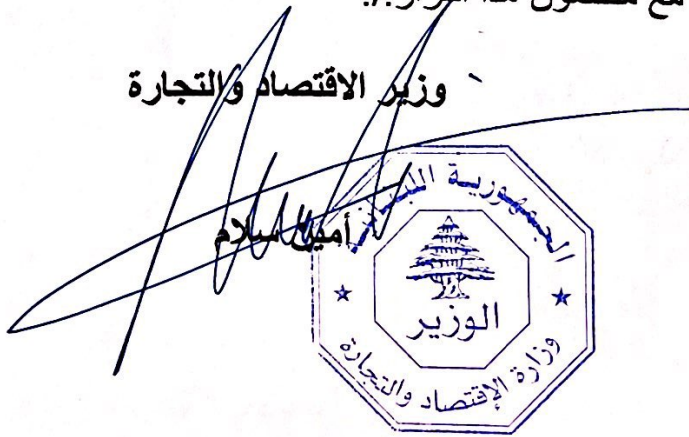 مع
وزير الاقتصاد والتجارة
أمين سلام
الجمهورية اللبنانية
الوزير
وزارة الإقتصاد والتجارة